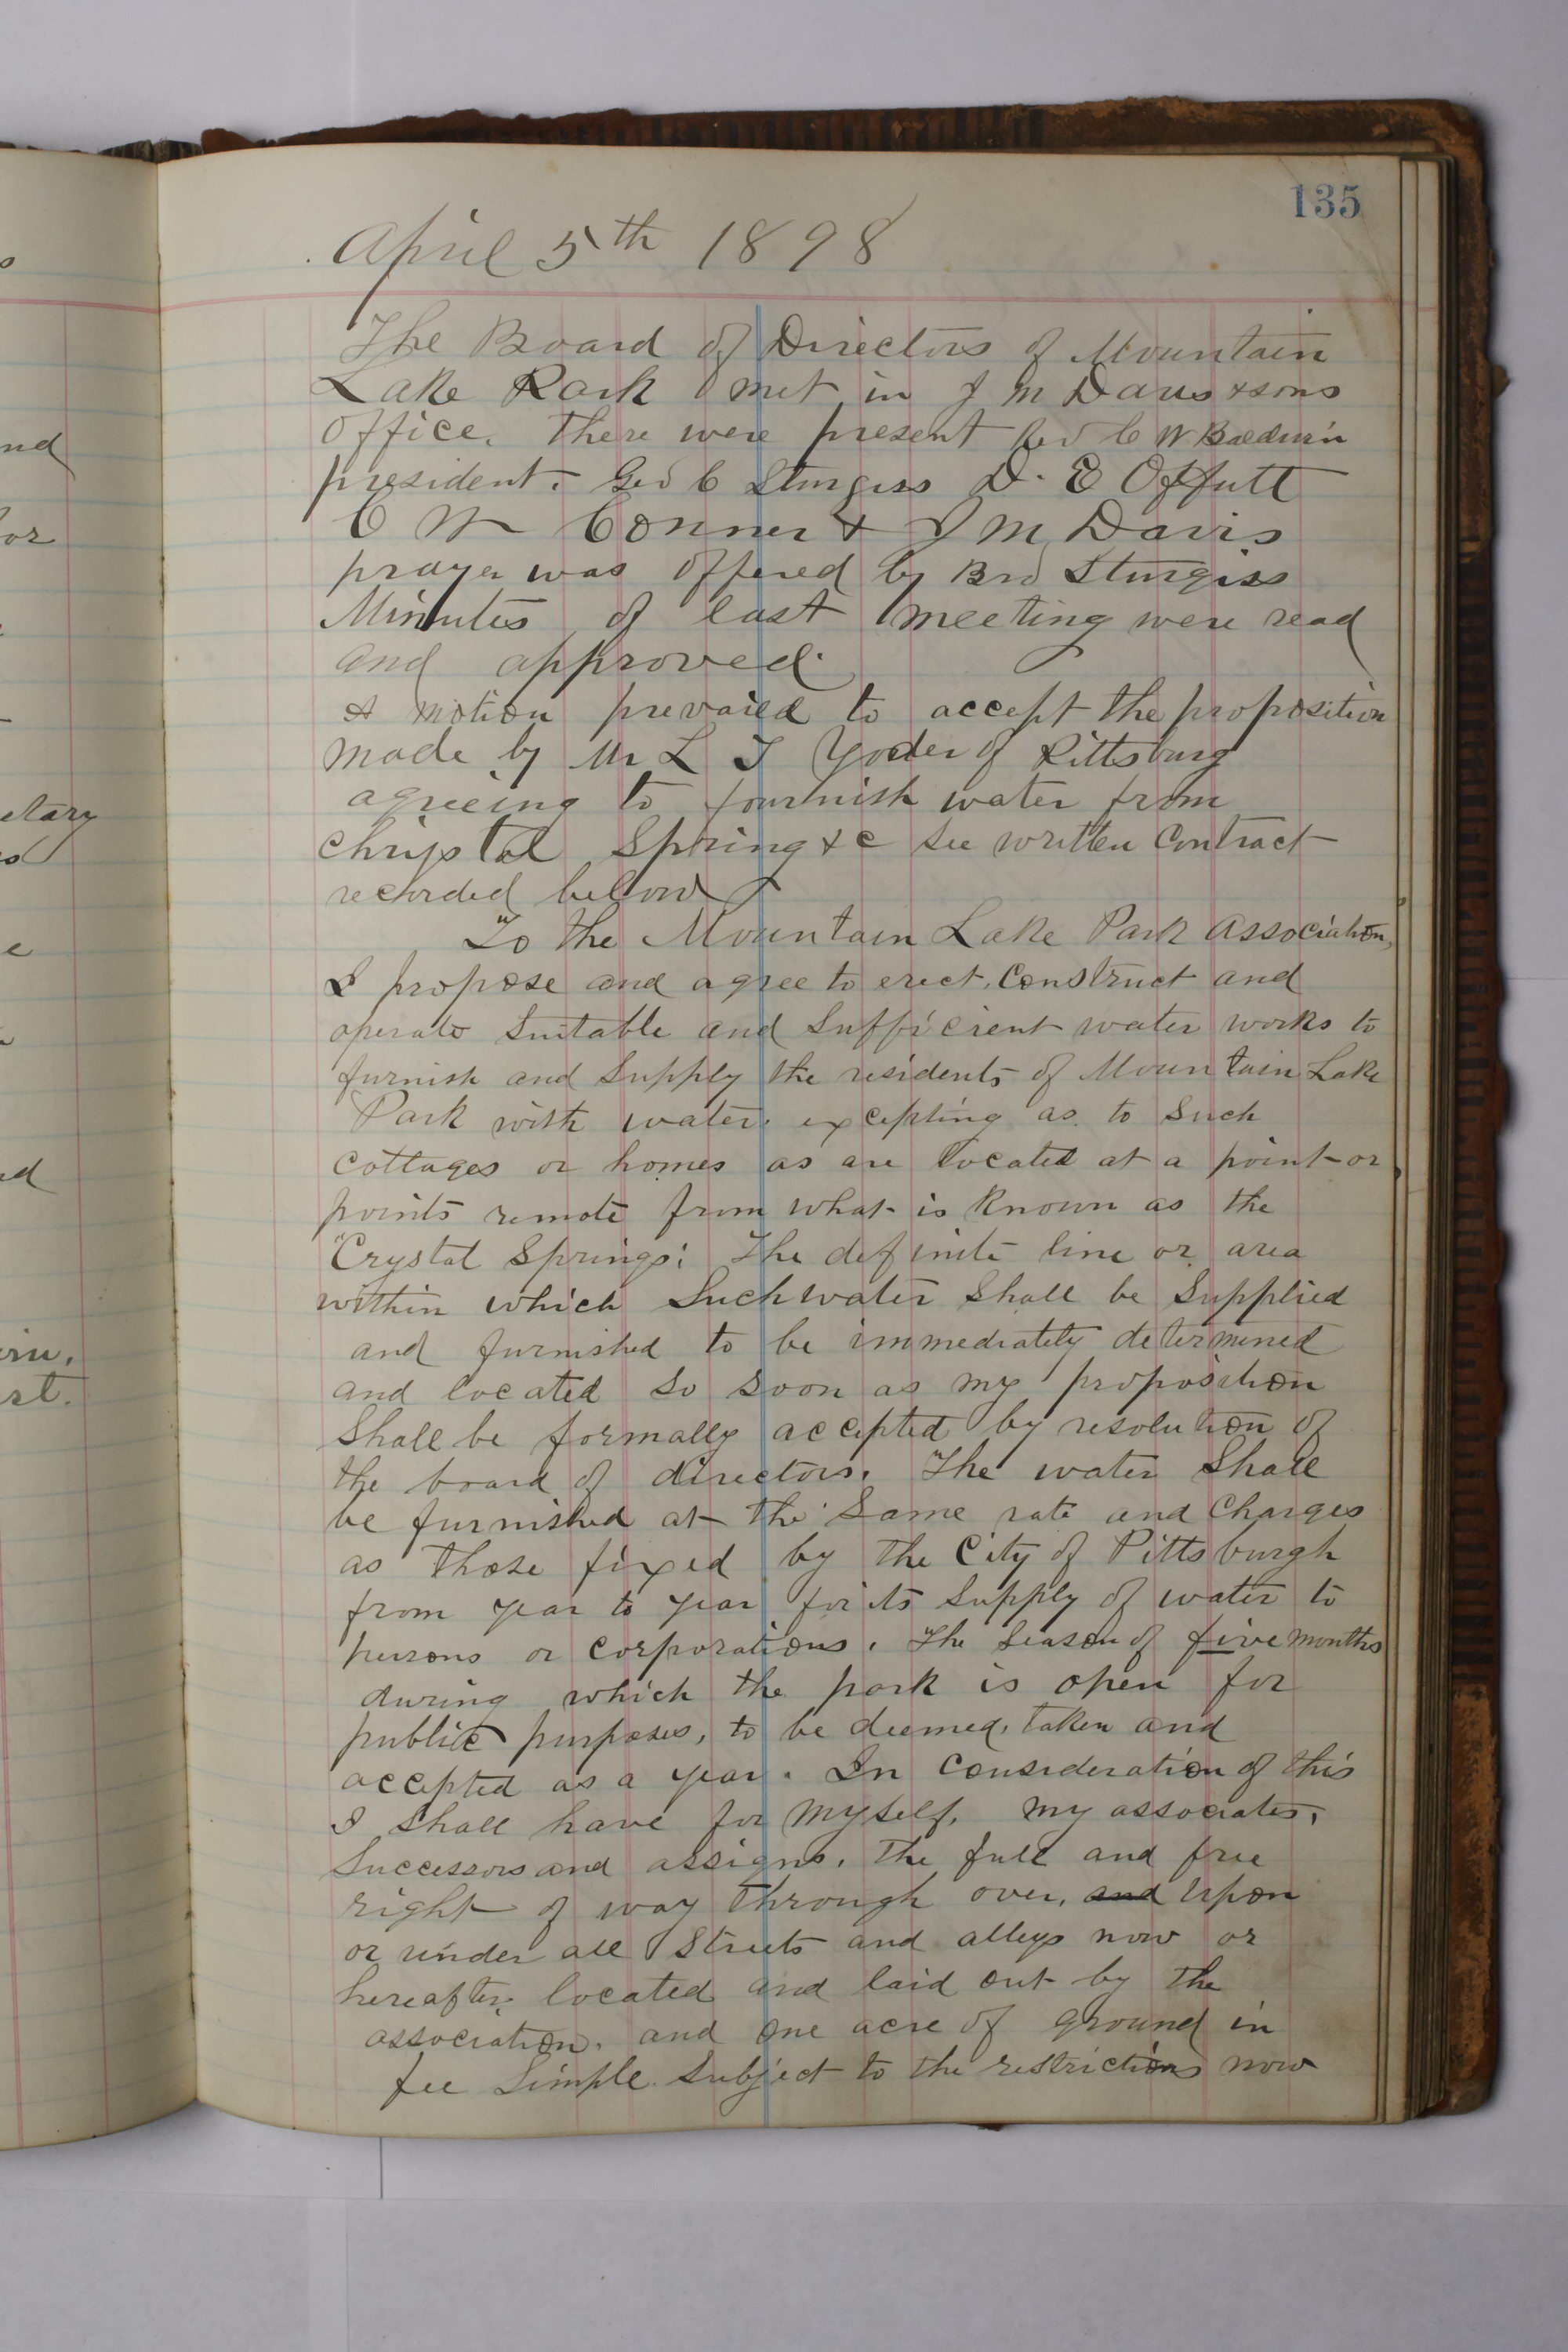 135
April 5th 1898
The Board of Directors of Mountain
Lake Park met in J M Davis & sons
office. there were present Rev C W Baldwin
president. Geo C Sturgiss D. E Offutt
C W Conner & J M Davis
prayer was offered by Bro Sturgiss
Minutes of last meeting were read
and approved.
A motion prevailed to accept the proposition
made by Mr L T Yoder of Pittsburg
agreeing to fournish water from
Chrystal Spring &c See written Contract
recorded below
To the Mountain Lake Park Association,
I propose and agree to erect, Construct and
operate Suitable and Sufficient water works to
furnish and Supply the residents of Mountain Lake
Park with water. excepting as to Such
Cottages or homes as are located at a point or
points remote from what is Known as the
"Crystal Springs: The definite line or area
within which Such water Shall be Supplied
and furnished to be immediately determined
and located So Soon as my proposition
Shall be formally accepted by resolution of
the board of directors. The water Shall
be furnished at the Same rate and Charges
as those fixed by the City of Pittsburgh
from year to year for its Supply of water to
persons or Corporations. The Season of five months
during which the park is open for
public purposes, to be deemed, taken and
accepted as a year. In Consideration of this
I Shall have for Myself, my associates,
Successors and assigns. the full and free
right of way through over, and Upon
or under all Streets and alleys now or
hereafter located and laid out by the
association. and one acre of ground in
fee Simple Subject to the restrictions now
nd
or
etary
e
nd